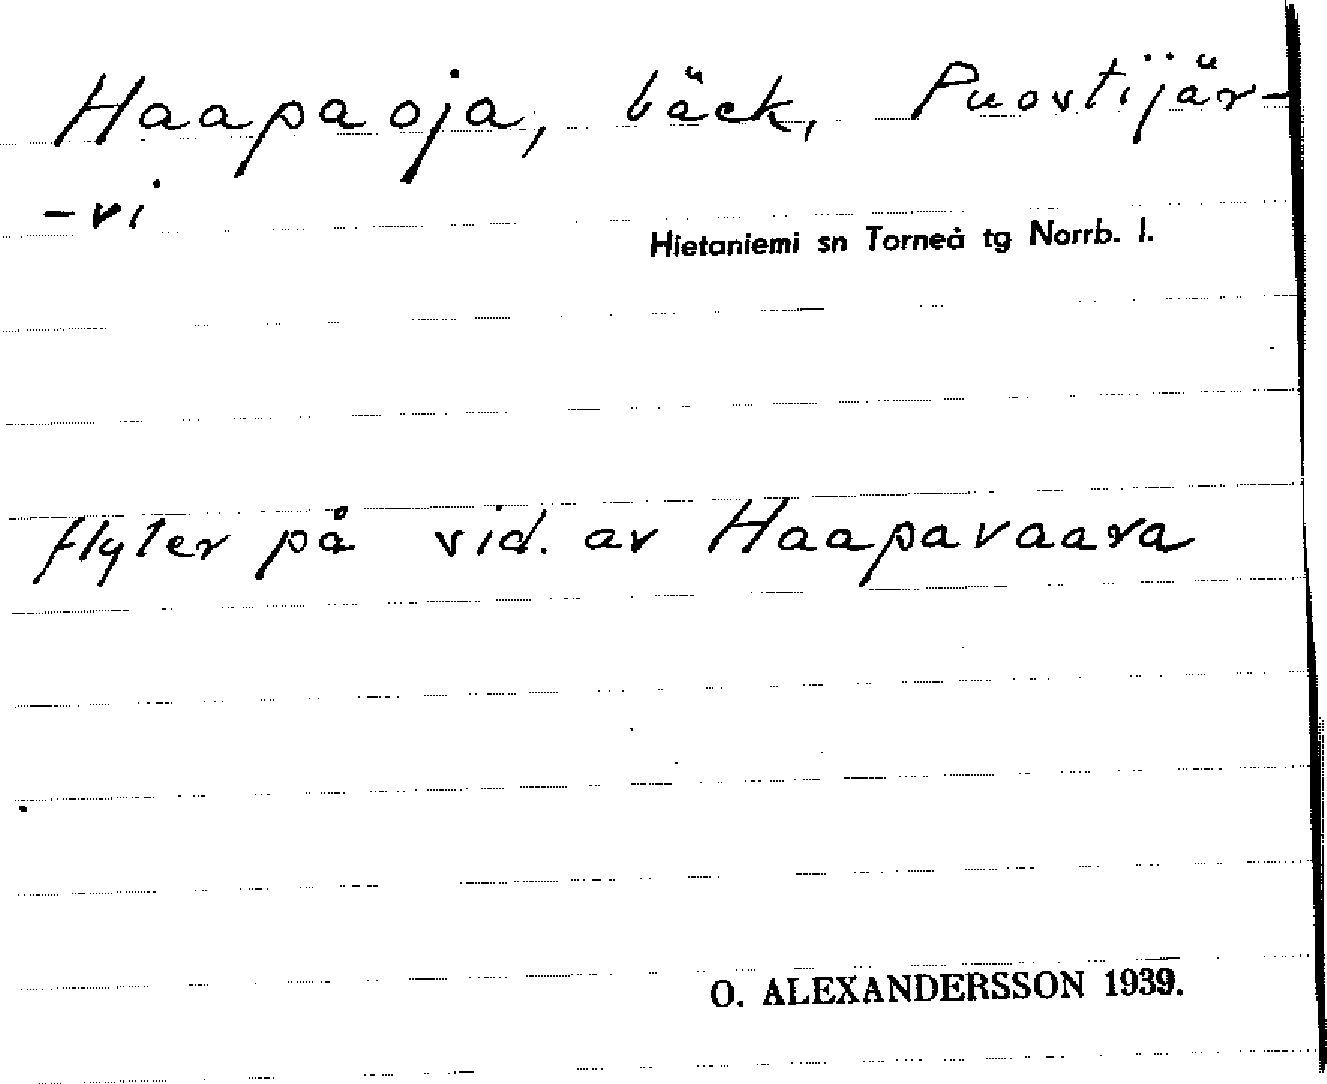 Haapaoja, bäck, Puostijär-
-vi
Hietaniemi sn Torneå tg Norrb. l.
flyter på vid. av Haapavaara
O. ALEXANDERSSON 1939.